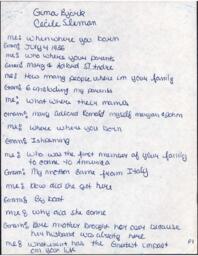 Gina Bjork
Cecile Sleman
me: when where you born
Gram: July 4 1926
me: who where your parents
Gram: Mary &
me: How many people where in your family
Gram: 6 including my parents
me: What where their names
Gram: mary Ronald myself John
me: where where you born
Gram: Ishpeming
me: who was the first member of your family
to come to America
Gram: My mother came from Italy
me: How did she get here
Gram: By boat
me: why did she come
Gram: mother brought her over because
her husband was already here
me: what has the Greatest impact
on your life